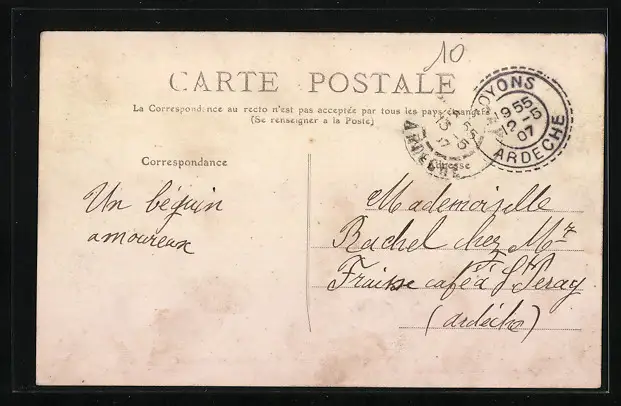 10
CARTE POSTALE
La Correspondence au recto n'est pas acceptée par tous les pays étrangers
(Se renseigner a la Poste)
Correspondance
Adresse
SOYONS
19 55
12 -5
07
ARDECHE
ARDECHE
Un béguin
amoureux
Mademoiselle
Rachel chez Mr
Fraisse café à St Peray
(ardèche)